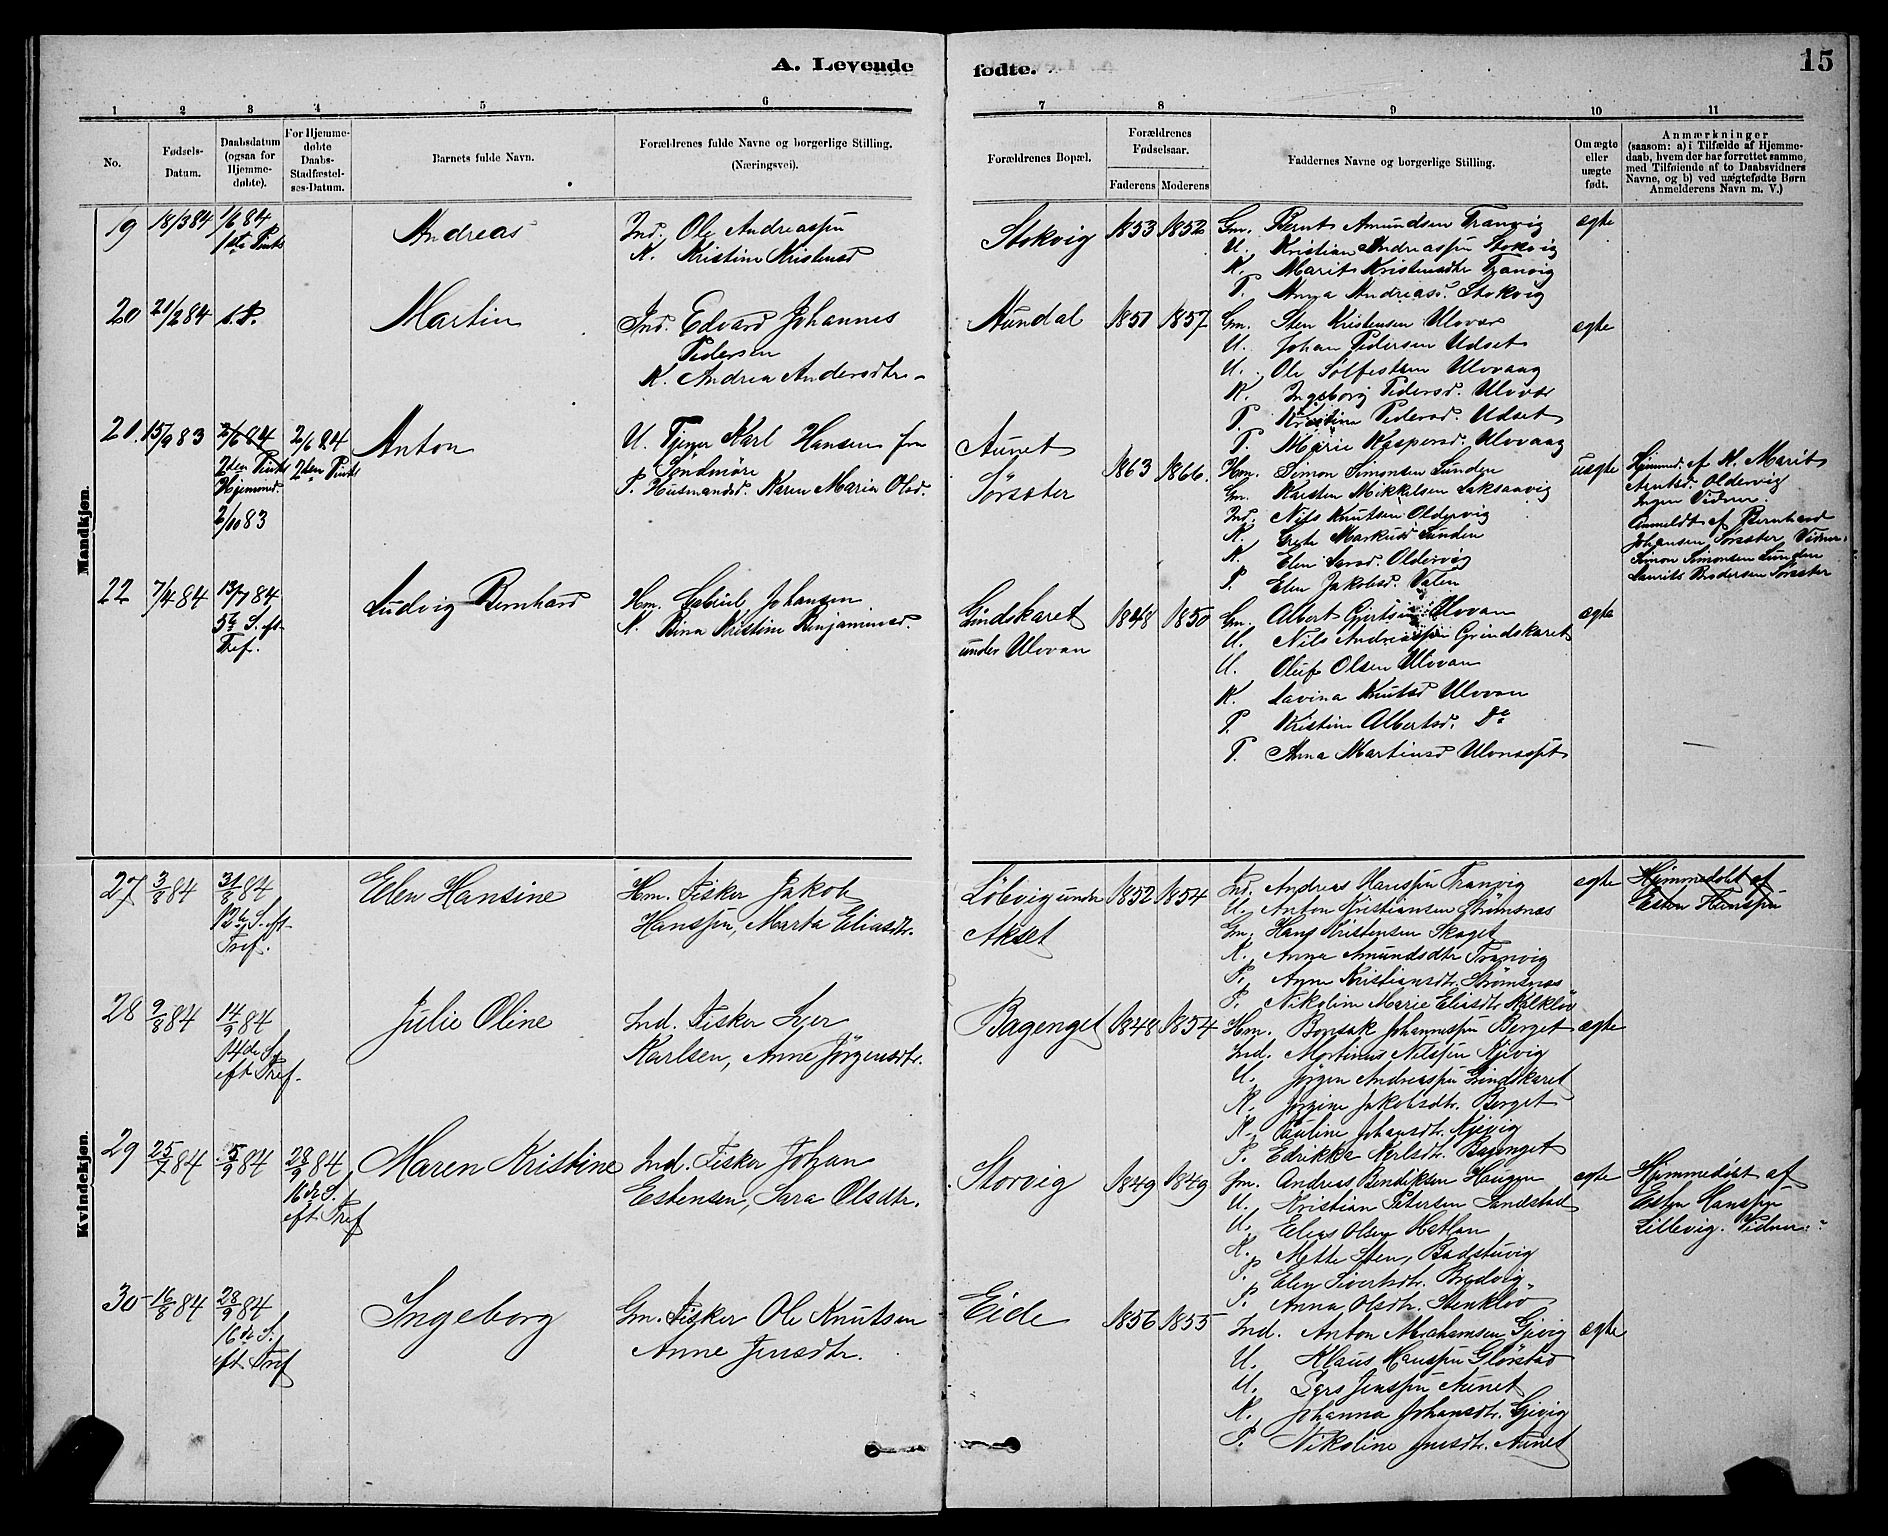 A. Levende
fødte.
15
1 2 3 4 5 6
7 8 9 10 11
No.
Fødsels-
Datum.
Daabsdatum
(ogsaa for
Hjemme-
døbte).
For Hjemme-
døbte
Daabs-
Stadfæstel-
ses-Datum.
Barnets fulde Navn.
Forældrenes fulde Navne og borgerlige Stilling.
(Næringsvei).
Forældrenes Bopæl.
Forældrenes
Fødselsaar.
Faderens
Moderens
Faddernes Navne og borgerlige Stilling.
Om ægte
eller
uægte
født.
Anmærkninger
(saasom: a) i Tilfælde af Hjemme-
daab, hvem der har forrettet samme,
med Tilføiende af to Daabsvidners
Navne, og b) ved uægtefødte Børn
Anmelderens Navn m. V.)
Mandkjøn.
19
18/3 84
1/6 84
1ste Pints
Andreas
Ind. Ole Andreassen
K. Kristine Kristensd
Stokvig
1853
1852
Gm. Bernt Amundsen Tranvig
U. Kristian Andreassen Stokvig
K. Marit Kristensdtr Tranvig
P. Anna Andreasd. Stokvig
ægte
20
21/2 84
s. D.
Martin
Ind. Edvard Johannes
Pedersen
K. Andrea Andersdtr
Aundal
1851
1857
Gm. Sten Kristensen Ulvvær
U. Johan Pedersen Udset
U. Ole Sølfestsen Ulvvaag
K. Ingeborg Pedersd. Ulvvær
P. Kristine Pedersd. Udset
P. Marie Kaspersd. Ulvvaag
ægte
21.
15/9 83
2/6 84
2den Pints
Hjemmed.
2/10 83
2/6 84
2den Pints
Anton
U. Tjener Karl Hansen fra
Søndmøre
P. Husmandsd. Karen Maria Olsd.
Aunet
Sørsæter
1863
1866.
Hm. Simon Simonsen Sunden
Gm. Karsten Mikkelsen Laksaavig
Ind. Nils Knutsen Oldervig
K. Grete Markusd Sunden
K. Elen Larsd. Oldervig
P. Elen Jakobsd. Valen
uægte
Hjemmed. af K. Marit
Arntsd. Oldervig
Ingen Vidner.
Anmeldt af Bernhard
Johansen Sørsæter. Vidner:
Simon Simonsen Sunden
Laurits Brodersen Sørsæter
22
7/4 84
13/7 84
5te S. eft.
Tref.
Ludvig Bernhard
Hm. Gabriel Johansen
K. Bina Kristine Benjaminsd.
Grindskaret
under Ulvvan
1848
1850
Gm. Albert Gjertsen Ulvvan
U. Nils Andreassen Grindskaret
U. Oluf Olsen Ulvvan
K. Lavina Knutsd Ulvvan
P. Kristine Albertsd. Do
P. Anna Martinsd Ulvnesset
ægte
Kvindekjøn.
27
3/8 84
31/8 84
12te S. eft.
Tref.
Elen Hansine
Hm. Fisker Jakob
Hanssen, Marta Eliasdtr.
Løkvig under
Akset
1852
1854
Ind. Andreas Hanssen Tranvig
U. Anton Kristiansen Strømsnæs
Gm. Hans Kristensen Skaget
K. Anne Amundsdtr Tranvig
P. Anne Kristiansdtr. Strømsnæs
P. Nikoline Marie Eliasdtr Kalkløv
ægte
Hjemmedøbt af
Esten Hanssen
28
9/8 84
14/9 84
14de S.
eft Tref.
Julie Oline
Ind. Fisker Iver
Karlsen, Anne Jørgensdtr.
Bagenget
1848
1854
Hm. Bonsak Johannessen Berget
Ind. Martinus Nilssen Kjevig
U. Jørgen Andreassen Grindskaret
K. Jørgine Jakobsdtr. Berget
K. Pauline Johansdtr. Kjevig
P. Edrikka Karlsdtr. Bagenget
ægte
29
25/7 84
5/9 84
28/9 84
16de S.
eft Tref
Maren Kristine
Ind. Fisker Johan
Estensen, Sara Olsdtr.
Storvig
1849
1849
Gm. Andreas Bendiksen Haugen
U. Kristian Petersen Sandstad
U. Elias Olsen Hatlan
K. Mette Sten, Badstuvig
P. Elen Sivertsdtr. Bredvig
P. Anna Olsdtr. Stenkløv
ægte
Hjemmedøbt af
Esten Hanssen
Lillevig. Vidner:
30
16/8 84
28/9 84
16de S.
eft Tref
Ingeborg
Gm. Fisker Ole Knutsen
Anne Jensdtr.
Eide
1856
1855
Ind. Anton Abrahamsen Gjevig
U. Klaus Hanssen Glørstad
U. Lars Jenssen Aunet
K. Johanna Johansdtr. Gjevig
P. Nikoline Jensdtr. Aunet
ægte